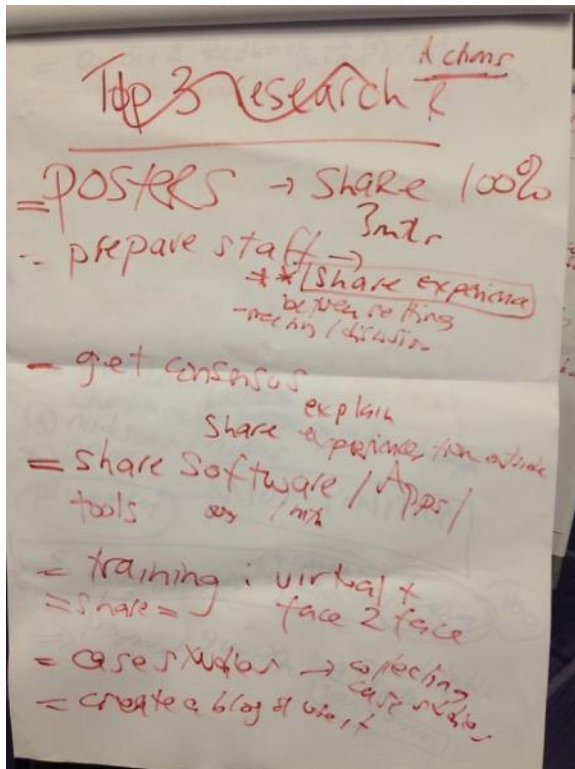 Top 3 research
Actions
= posters → share 100%
3 mths
- prepare staff →
** share experience
between setting
- meeting / discussion
- get consensus
explain
share experience from outside
= share software / Apps /
tools
= training : virtual +
=share= face 2 face
= case studies → collecting
case studies
= create a blog